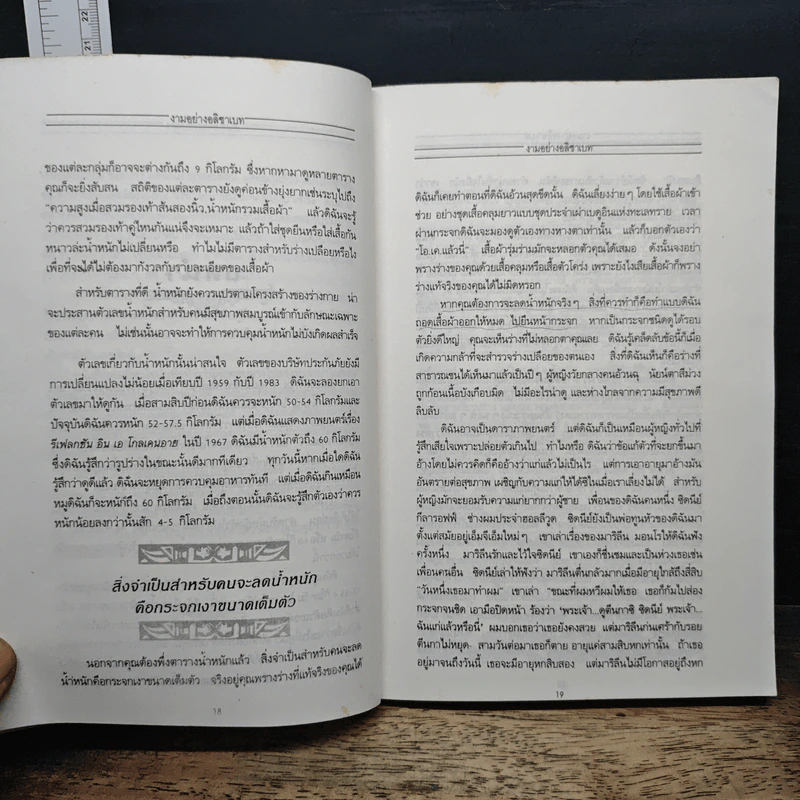 22
21
งามอย่างอลิซาเบท
ของแต่ละกลุ่มก็อาจจะต่างกันถึง 9 กิโลกรัม ซึ่งหากหามาดูหลายตาราง
คุณก็จะยิ่งสับสน สถิติของแต่ละตารางยังดูค่อนข้างยุ่งยากเช่นระบุไปถึง
"ความสูงเมื่อสวมรองเท้าส้นสองนิ้ว,น้ำหนักรวมเสื้อผ้า" แล้วดิฉันจะรู้
ว่าควรสวมรองเท้าคู่ไหนกันแน่จึงจะเหมาะ แล้วถ้าใส่ชุดยีนหรือใส่เสื้อกัน
หนาวล่ะน้ำหนักไม่เปลี่ยนหรือ ทำไมไม่มีตารางสำหรับร่างเปลือยหรือไง
เพื่อที่จะได้ไม่ต้องมากังวลกับรายละเอียดของเสื้อผ้า
สำหรับตารางที่ดี น้ำหนักยังควรแปรตามโครงสร้างของร่างกาย น่า
จะประสานตัวเลขน้ำหนักสำหรับคนมีสุขภาพสมบูรณ์เข้ากับลักษณะเฉพาะ
ของแต่ละคน ไม่เช่นนั้นอาจจะทำให้การควบคุมน้ำหนักไม่บังเกิดผลสำเร็จ
ตัวเลขเกี่ยวกับน้ำหนักนั้นน่าสนใจ ตัวเลขของบริษัทประกันภัยยังมี
การเปลี่ยนแปลงไม่น้อยเมื่อเทียบปี 1959 กับปี 1983 ดิฉันจะลองยกเอา
ตัวเลขมาให้ดูกัน เมื่อสามสิบปีก่อนดิฉันควรจะหนัก 50-54 กิโลกรัมและ
ปัจจุบันดิฉันควรหนัก 52-57.5 กิโลกรัม แต่เมื่อดิฉันแสดงภาพยนตร์เรื่อง
รีเฟลกชัน อิน เอ โกลเดนอาย ในปี 1967 ดิฉันมีน้ำหนักตัวถึง 60 กิโลกรัม
ซึ่งดิฉันรู้สึกว่ารูปร่างในขณะนั้นดีมากทีเดียว ทุกวันนี้หากเมื่อใดดิฉัน
รู้สึกว่าดูดีแล้ว ดิฉันจะหยุดการควบคุมอาหารทันที แต่เมื่อดิฉันกินเหมือน
หมูดิฉันก็จะหนักถึง 60 กิโลกรัม เมื่อถึงตอนนั้นดิฉันจะรู้สึกตัวเองว่าควร
หนักน้อยลงกว่านั้นสัก 4-5 กิโลกรัม
สิ่งจำเป็นสำหรับคนจะลดน้ำหนัก
คือกระจกเงาขนาดเต็มตัว
นอกจากคุณต้องพึ่งตารางน้ำหนักแล้ว สิ่งจำเป็นสำหรับคนจะลด
น้ำหนักคือกระจกเงาขนาดเต็มตัว จริงอยู่คุณพรางร่างที่แท้จริงของคุณได้
18
งามอย่างอลิซาเบท
ดิฉันก็เคยทำตอนที่ดิฉันอ้วนสุดขีดนั้น ดิฉันเลี่ยงง่ายๆ โดยใช้เสื้อผ้าเข้า
ช่วย อย่างชุดเสื้อคลุมยาวแบบชุดประจำเผ่าเบดูอินแห่งทะเลทราย เวลา
ผ่านกระจกดิฉันจะมองดูตัวเองทางหางตาเท่านั้น แล้วก็บอกตัวเองว่า
"โอ.เค.แล้วนี่" เสื้อผ้ารุ่มร่ามมักจะหลอกตัวคุณได้เสมอ ดังนั้นจงอย่า
พรางร่างของคุณด้วยเสื้อคลุมหรือเสื้อตัวโคร่ง เพราะยังไงเสียเสื้อผ้าก็พราง
ร่างแท้จริงของคุณได้ไม่มิดหรอก
หากคุณต้องการจะลดน้ำหนักจริงๆ สิ่งที่ควรทำก็คือทำแบบดิฉัน
ถอดเสื้อผ้าออกให้หมด ไปยืนหน้ากระจก หากเป็นกระจกชนิดดูได้รอบ
ตัวยิ่งดีใหญ่ คุณจะเห็นร่างที่ไม่หลอกตาคุณเลย ดิฉันรู้เคล็ดลับข้อนี้ก็เมื่อ
เกิดความกล้าที่จะสำรวจร่างเปลือยของตนเอง สิ่งที่ดิฉันเห็นก็คือร่างที่
สาธารณชนได้เห็นมาแล้วเป็นปีๆ ผู้หญิงวัยกลางคนอ้วนฉุ นัยน์ตาสีม่วง
ถูกก้อนเนื้อบังเกือบมิด ไม่มีอะไรน่าดู และห่างไกลจากความมีสุขภาพดี
ลิบลับ
ดิฉันอาจเป็นดาราภาพยนตร์ แต่ดิฉันก็เป็นเหมือนผู้หญิงทั่วไปที่
รู้สึกเสียใจเพราะปล่อยตัวเกินไป ทำไมหรือ ดิฉันว่าข้อแก้ตัวที่จะยกขึ้นมา
อ้างโดยไม่ควรคิดก็คืออ้างว่าแก่แล้วไม่เป็นไร แต่การเอาอายุมาอ้างมัน
อันตรายต่อสุขภาพ เผชิญกับความแก่ให้ได้ซิในเมื่อเราเลี่ยงไม่ได้ สำหรับ
ผู้หญิงมักจะยอมรับความแก่ยากกว่าผู้ชาย เพื่อนของดิฉันคนหนึ่ง ซิดนีย์
กีลารอฟฟ์ ช่างผมประจำฮอลลีวูด ซิดนีย์ยังเป็นพ่อทูนหัวของดิฉันมา
ตั้งแต่สมัยอยู่เอ็มจีเอ็มใหม่ๆ เขาเล่าเรื่องของมาริลีน มอนโรให้ดิฉันฟัง
ครั้งหนึ่ง มาริลีนรักและไว้ใจซิดนีย์ เขาเองก็ชื่นชมและเป็นห่วงเธอเช่น
เพื่อนคนอื่น ซิดนีย์เล่าให้ฟังว่า มาริลีนตื่นกลัวมากเมื่อมีอายุใกล้ถึงสี่สิบ
"วันหนึ่งเธอมาทำผม" เขาเล่า "ขณะที่ผมหวีผมให้เธอ เธอก็ก้มไปส่อง
กระจกจนชิด เอามือปิดหน้า ร้องว่า 'พระเจ้า...ดูตีนกาซิ ซิดนีย์ พระเจ้า...
ฉันแก่แล้วหรือนี่' ผมบอกเธอว่าเธอยังคงสวย แต่มาริลีนก่นเศร้ากับรอย
ตีนกาไม่หยุด สามวันต่อมาเธอก็ตาย อายุแค่สามสิบหกเท่านั้น ถ้าเธอ
อยู่มาจนถึงวันนี้ เธอจะมีอายุหกสิบสอง แต่มาริลีนไม่มีโอกาสอยู่ถึงหก
19